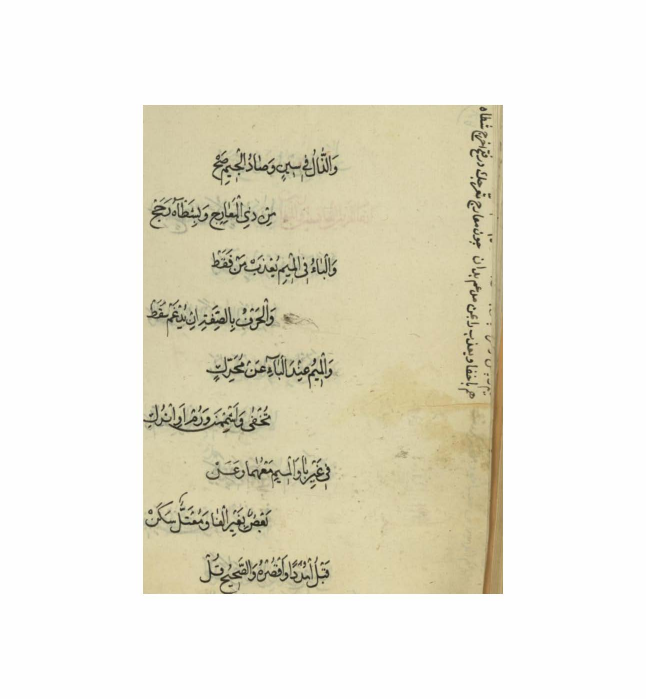 وَالذَّالُ فِي سِينٍ وَصَادُ الْجِيمِ صَحْ
مِنْ ذِي الْمَعَارِجِ وَبِشَطْأَهُ رَجَحْ
وَالْبَاءُ فِي الْمِيمِ يُعَذِّبَ مَنْ فَقَطْ
وَالْحَرْفُ بِالصِّفَةِ اِنْ يُدْغَمْ سَقَطْ
وَالْمِيمُ عِنْدَ الْبَآءِ عَنْ مُحَرَّكٍ
تُخْفٰى وَاَشْمِمَنْ وَرُمْ اَوِ اتْرُكِ
فِي غَيْرِ بَا وَالْمِيمِ مَعْهُمَا وَعَنْ
بَعْضٌ بِغَيْرِ الْفَا وَمُعْتَلٌّ سَكَنْ
قَبْلُ امْدُدًا وَاقْصُرْهُ وَالصَّحِيحُ قُلْ